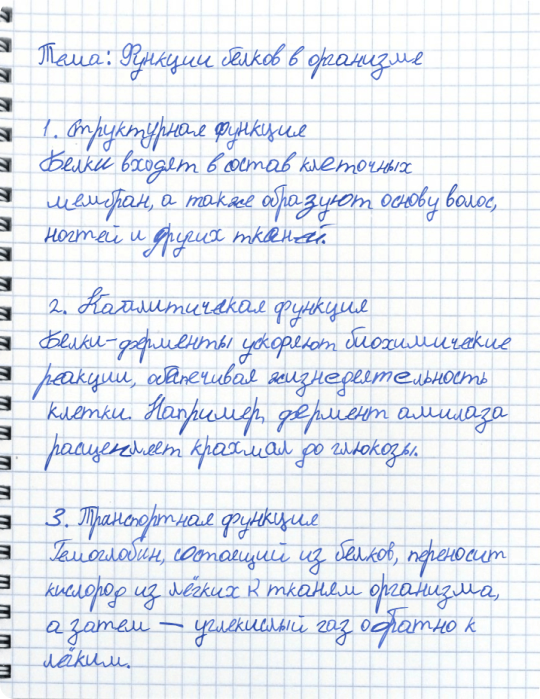 Тема: Функции белков в организме
1. Структурная функция
Белки входят в состав клеточных
мембран, а также образуют основу волос,
ногтей и других тканей.
2. Каталитическая функция
Белки-ферменты ускоряют биохимические
реакции, обеспечивая жизнедеятельность
клетки. Например, фермент амилаза
расщепляет крахмал до глюкозы.
3. Транспортная функция
Гемоглобин, состоящий из белков, переносит
кислород из лёгких к тканям организма,
а затем — углекислый газ обратно к
лёгким.